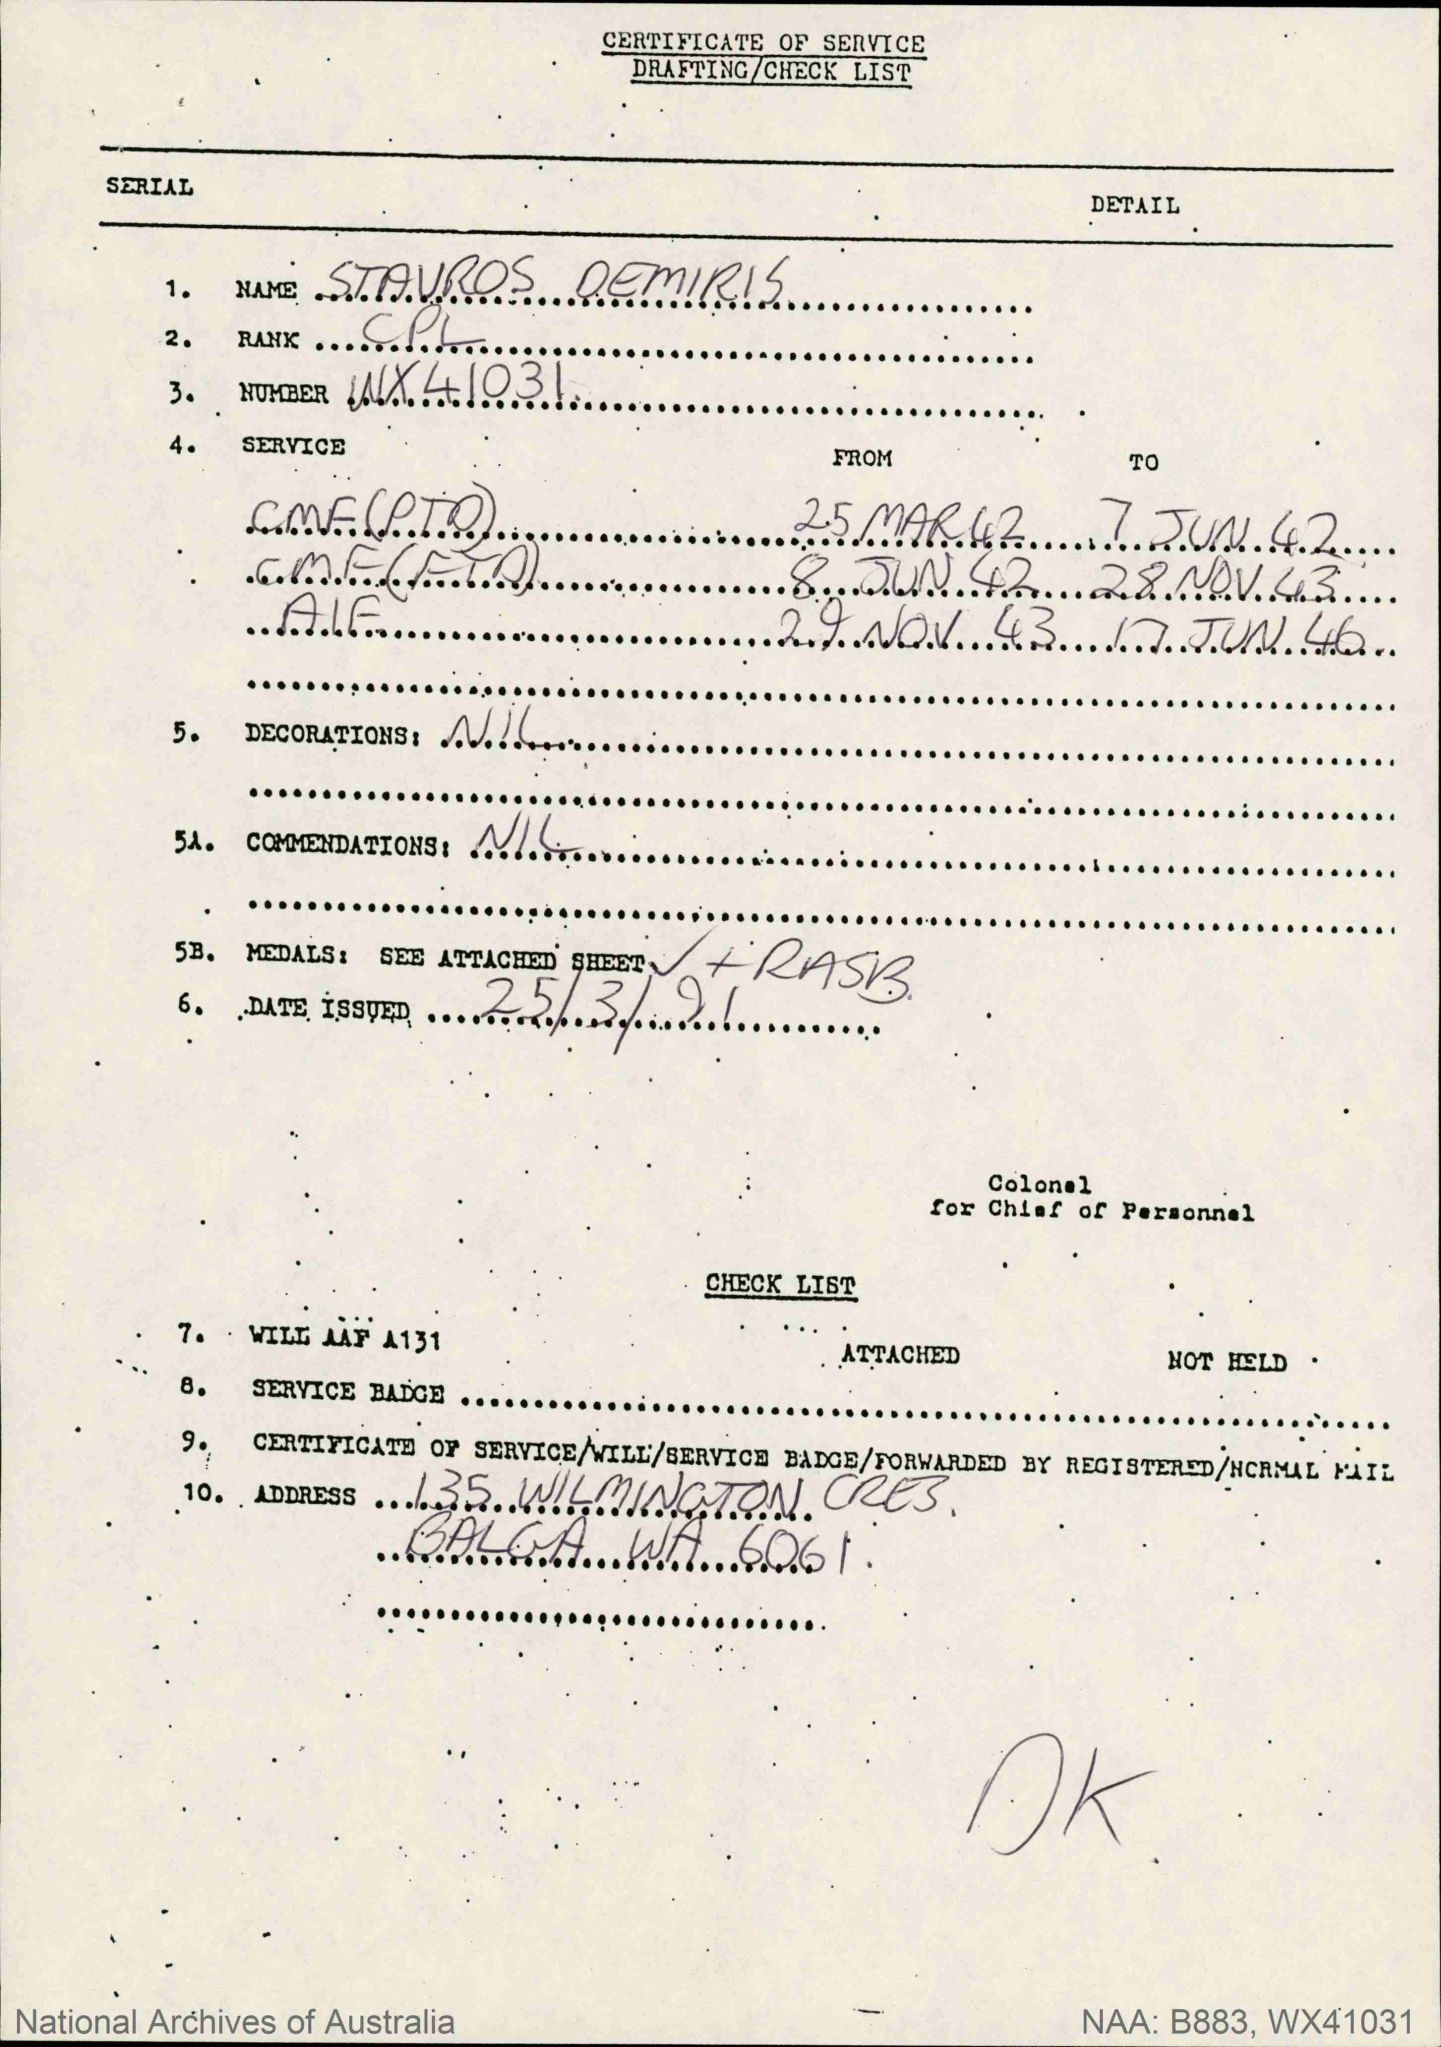 CERTIFICATE OF SERVICE
DRAFTING/CHECK LIST
SERIAL DETAIL
1. NAME STAVROS DEMIRIS
2. RANK CPL
3. NUMBER WX41031.
4. SERVICE FROM TO
CMF (PTD) 25 MAR 42 7 JUN 42
CMF (FTD) 8 JUN 42 28 NOV 43
AIF 29 NOV 43 17 JUN 46
5. DECORATIONS: NIL
5A. COMMENDATIONS: NIL
5B. MEDALS: SEE ATTACHED SHEET ✓ + RASB.
6. DATE ISSUED 25/3/91
Colonel
for Chief of Personnel
CHECK LIST
7. WILL AAF A131 ATTACHED NOT HELD
8. SERVICE BADGE
9. CERTIFICATE OF SERVICE/WILL/SERVICE BADGE/FORWARDED BY REGISTERED/NORMAL MAIL
10. ADDRESS 135 WILMINGTON CRES.
BALGA WA 6061.
OK
National Archives of Australia NAA: B883, WX41031